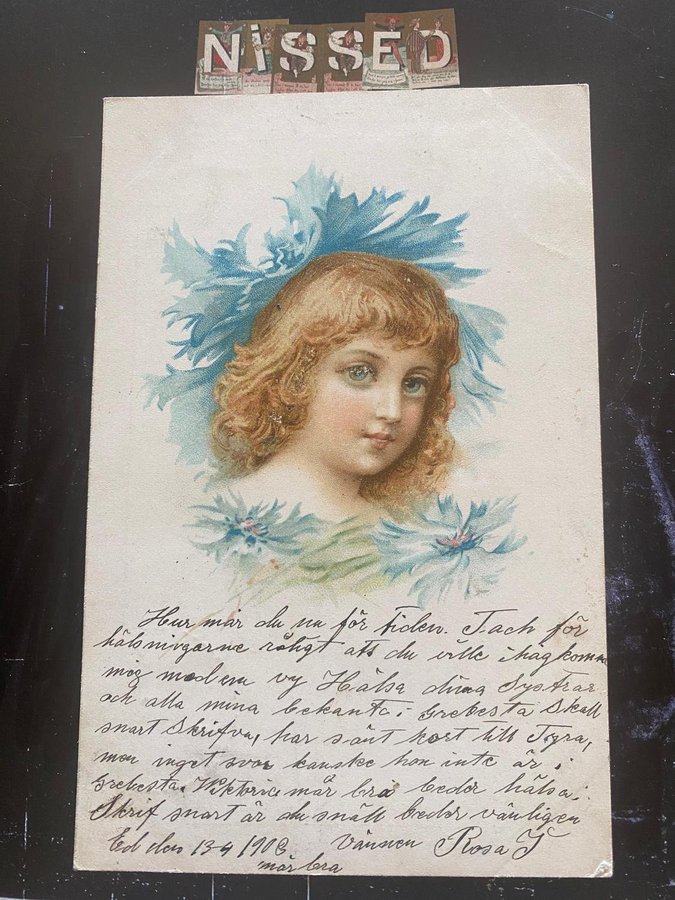 NiSSED
Hur mår du nu för tiden. Tach för
hälsningarne röligt att du ville ihågkomm
mig med en vy Helsa dina Systrar
och alla mina bekanta i Grebesta Skall
snart Skrifva, har sänt kort till Tyra,
men inget svar kanske hon inte är i
Grebesta. Viktoria mår bra beder hälsa.
Skrif snart är du snäll beder vänligen
Ed den 13-4 1903 Vännen Rosa J
mår bra